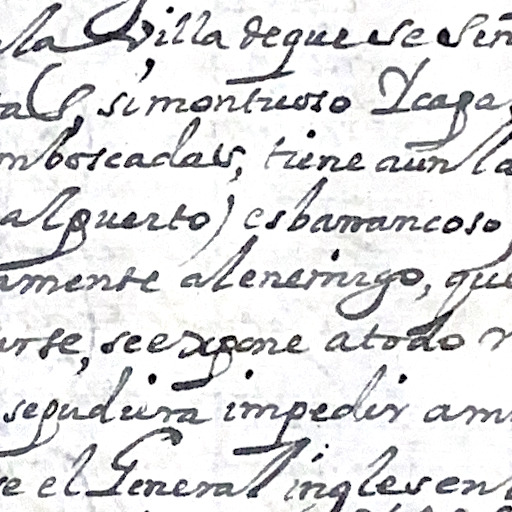 la Villa de que se señ
tal, si montuoso Y capa
mboscadas, tiene aun la
al puerto) es barrancoso,
amente al enemigo, que
arse, se expone a todo r
se pudiera impedir a mi
se el General ingles en l